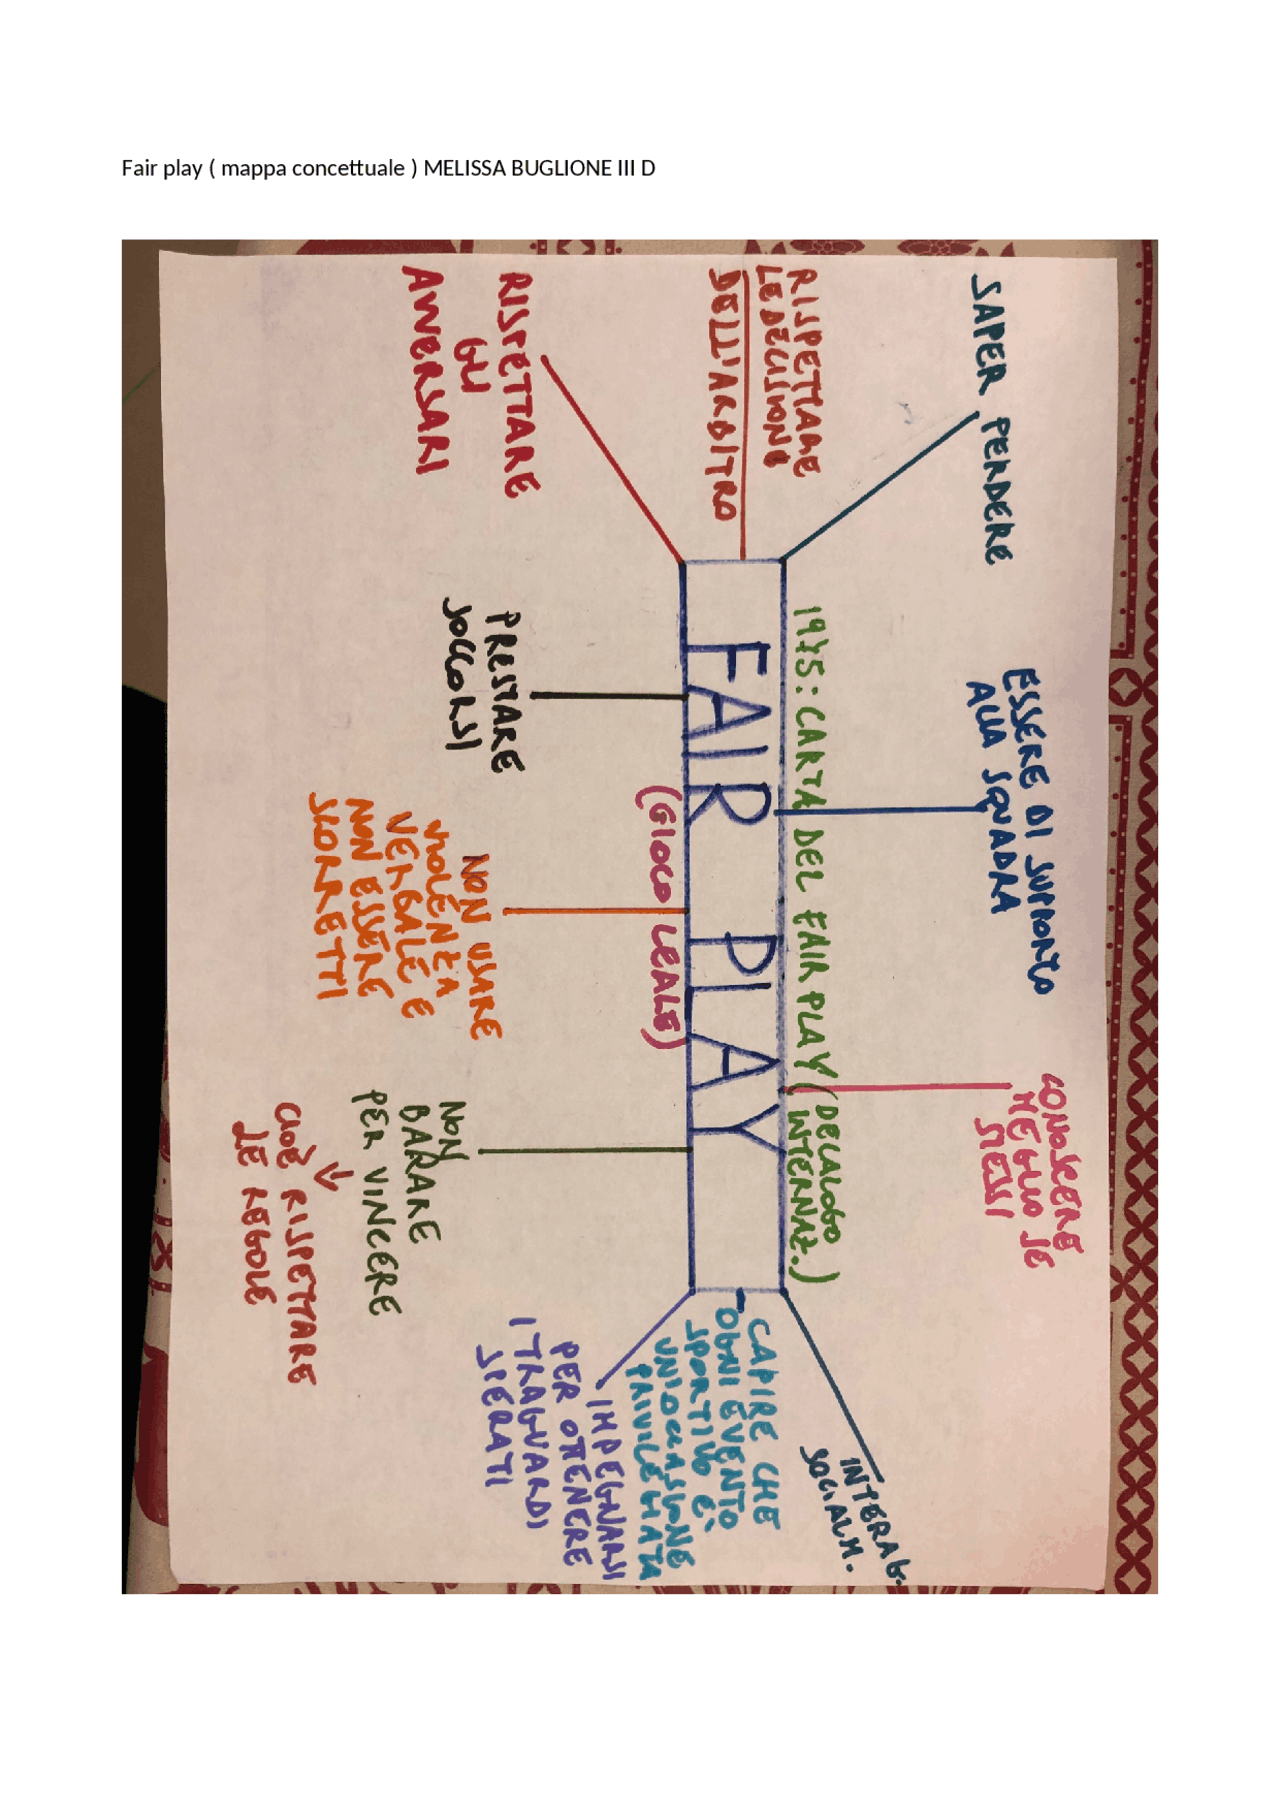 Fair play ( mappa concettuale ) MELISSA BUGLIONE III D
SAPER PERDERE
ESSERE DI SUPPORTO
ALLA SQUADRA
CONOSCERE
MEGLIO SE
STESSI
INTERAG.
SOCIALM.
RISPETTARE
LE DECISIONI
DELL'ARBITRO
1975: CARTA DEL FAIR PLAY (DECALOGO
INTERNAZ.)
FAIR PLAY
(GIOCO LEALE)
CAPIRE CHE
OGNI EVENTO
SPORTIVO È
UN'OCCASIONE
PRIVILEGIATA
RISPETTARE
GLI
AVVERSARI
PRESTARE
SOCCORSI
NON USARE
VIOLENZA
VERBALE E
NON ESSERE
SCORRETTI
NON
BARARE
PER VINCERE
CIOÈ RISPETTARE
LE REGOLE
IMPEGNARSI
PER OTTENERE
I TRAGUARDI
SPERATI